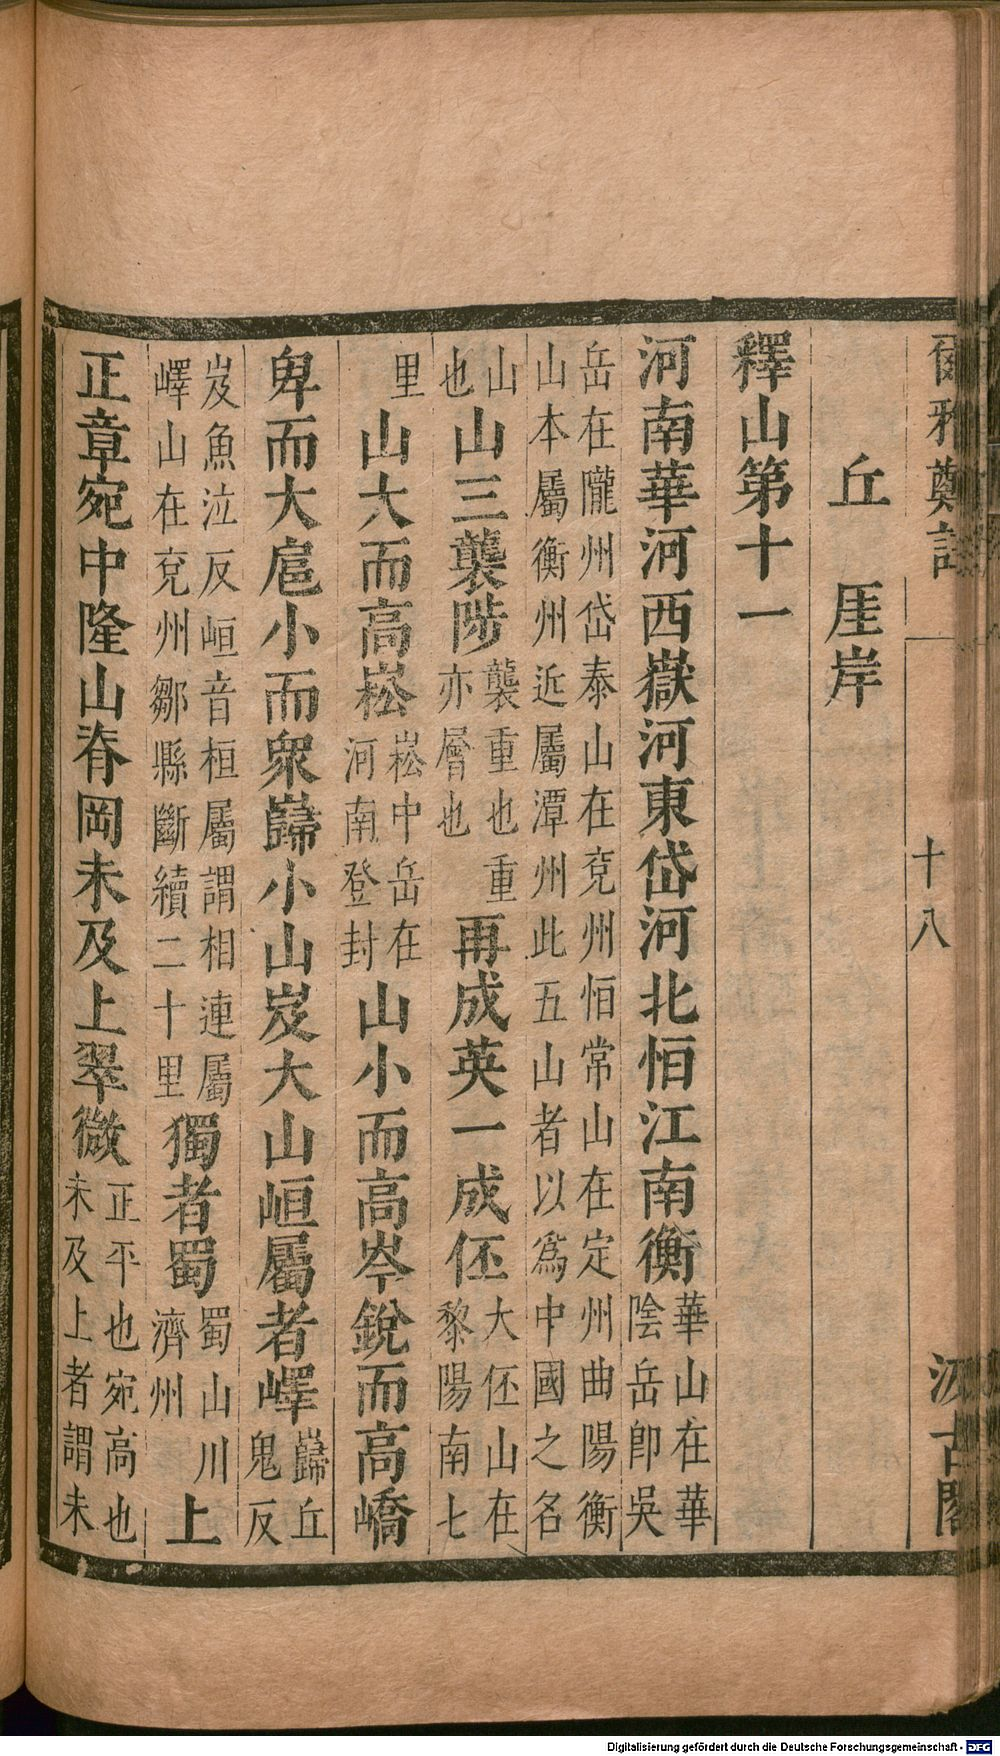 爾雅鄭註 十八 汲古閣
丘 厓岸
釋山第十一
河南華河西嶽河東岱河北恒江南衡
華山在華
陰岳卽吳
岳在隴州岱泰山在兗州恒常山在定州曲陽衡
山本屬衡州近屬潭州此五山者以爲中國之名
山
也
山三襲陟
襲重也重
亦層也
再成英一成伾
大伾山在
黎陽南七
里
山大而高崧
崧中岳在
河南登封
山小而高岑銳而高嶠
卑而大扈小而衆巋小山岌大山峘屬者嶧
巋丘
鬼反
岌魚泣反峘音桓屬謂相連屬
嶧山在兗州鄒縣斷續二十里
獨者蜀
蜀山川
濟州
上
正章宛中隆山脊岡未及上翠微
正平也宛高也
未及上者謂未
Digitalisierung gefördert durch die Deutsche Forschungsgemeinschaft - DFG